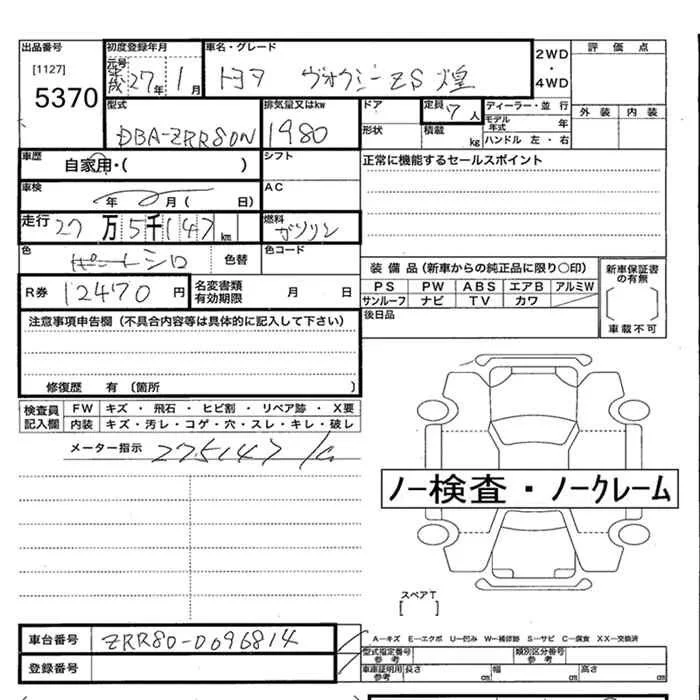 出品番号 初度登録年月 車名・グレード 2WD・4WD 評価点
[1127] 元号 平成 27年 1月 トヨタ ヴォクシーZS 煌
5370
型式 排気量又はkw ドア 定員 7人 ディーラー・並行 外装 内装
DBA-ZRR80N 1980 形状 積載 kg モデル年式 年
ハンドル 左・右
車歴 自家用・( ) シフト 正常に機能するセールスポイント
車検 年 月( 日) AC
走行 27万5千147km 燃料 ガソリン
色 シロ 色替 色コード
装備品(新車からの純正品に限り○印) 新車保証書の有無
R券 12470円 名変書類有効期限 月 日 PS PW ABS エアB アルミW
サンルーフ ナビ TV カワ
後日品 車載不可
注意事項申告欄(不具合内容等は具体的に記入して下さい)
修復歴 有〔箇所 〕
検査員記入欄 FW キズ・飛石・ヒビ割・リペア跡・X要
内装 キズ・汚レ・コゲ・穴・スレ・キレ・破レ
メーター指示 275147
ノー検査・ノークレーム
スペアT
[ ]
車台番号 ZRR80-0096814
A―キズ E―エクボ U―凹み W―補修跡 S―サビ C―腐食 XX―交換済
型式指定番号 参考 類別区分番号 参考
登録番号
車庫証明用 参考 長さ cm 幅 cm 高さ cm